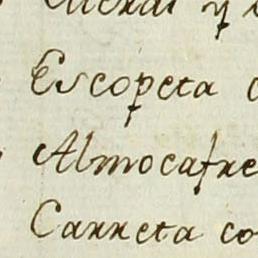 Escopeta
Almocafre
Carreta co